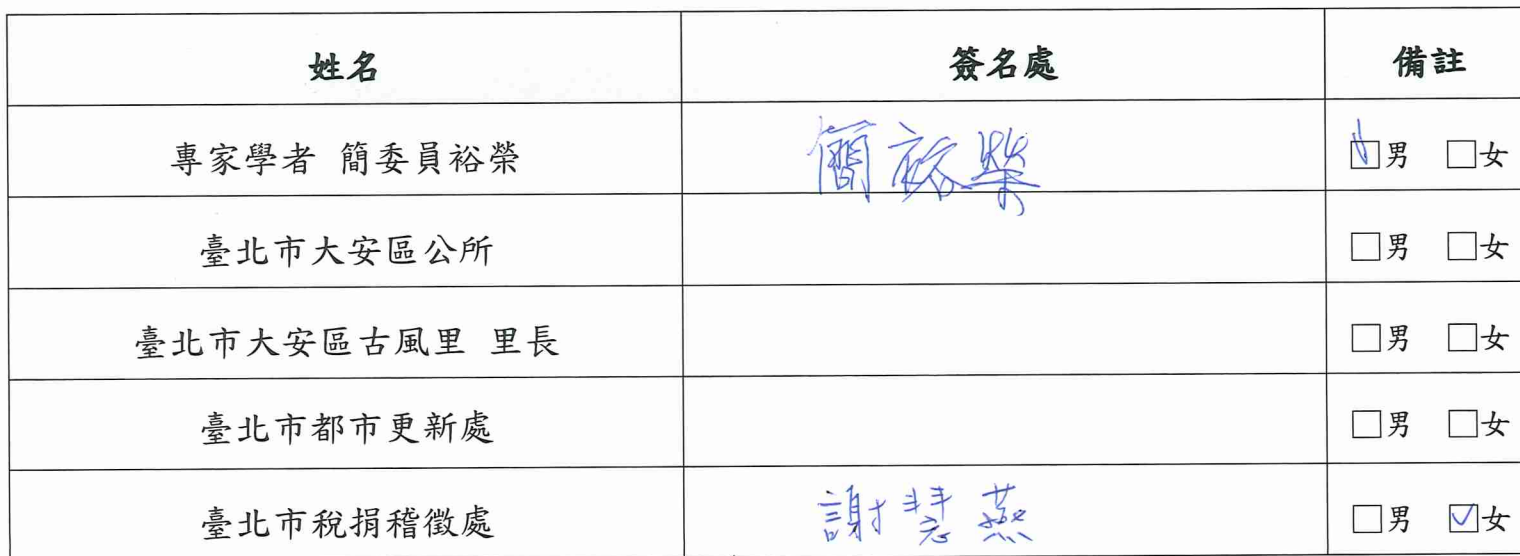 姓名 簽名處 備註
專家學者 簡委員裕榮 簡裕榮 ☑男 □女
臺北市大安區公所 □男 □女
臺北市大安區古風里 里長 □男 □女
臺北市都市更新處 □男 □女
臺北市稅捐稽徵處 謝慧燕 □男 ☑女